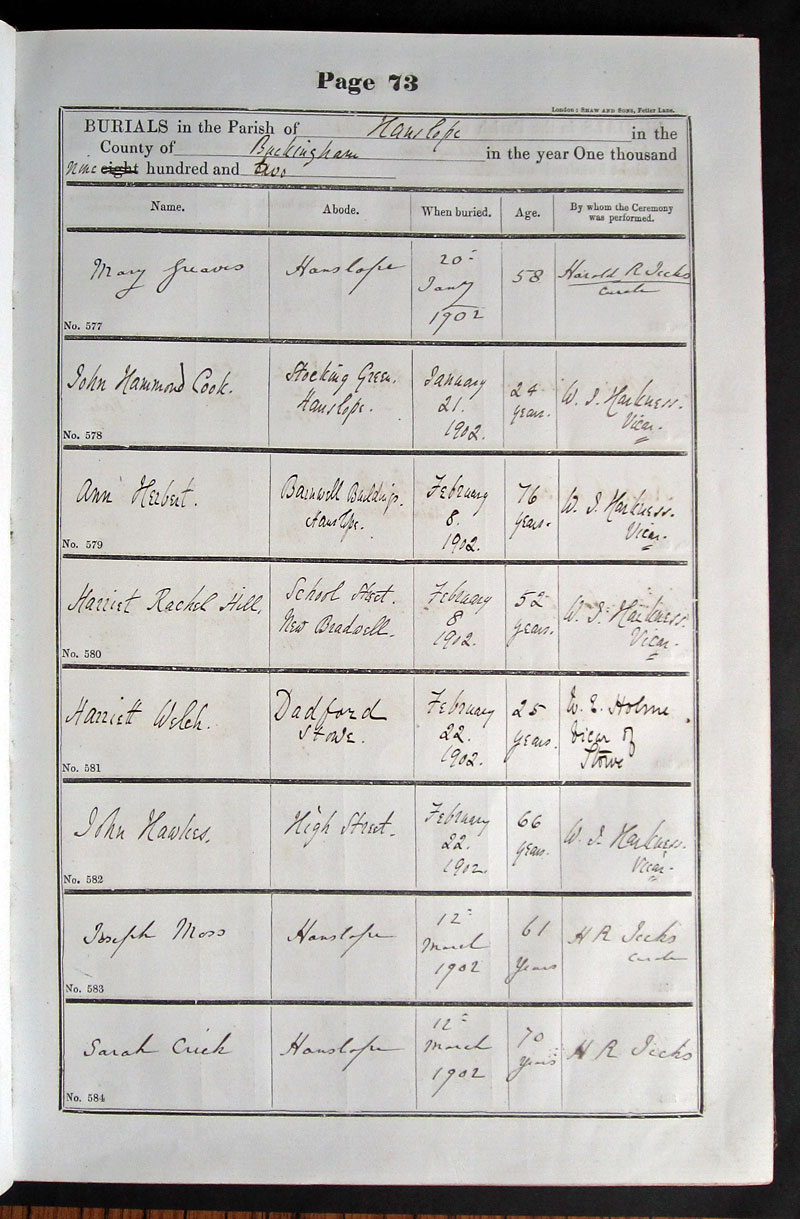 Page 73
London: SHAW AND SONS, Fetter Lane.
BURIALS in the Parish of Hanslope in the
County of Buckingham in the year One thousand
Nine eight hundred and two
Name. Abode. When buried. Age. By whom the Ceremony was performed.
Mary Greaves Hanslope 20 = Jany 1902 58 Harold R Jecks Curate
No. 577
John Hammond Cook. Stocking Green. Hanslope. January 21. 1902. 24 years. W. J. Harkness. Vicar.
No. 578
Ann Herbert. Barnwell Buildings. Hanslope. February 8. 1902. 76 years. W. J. Harkness. Vicar.
No. 579
Harriet Rachel Hill. School Street. New Bradwell. February 8 1902. 52 years. W. J. Harkness. Vicar.
No. 580
Harriett Welch. Dadford Stowe. February 22. 1902. 25 years. W. E. Holme Vicar of Stowe
No. 581
John Hawkes. High Street. February 22. 1902. 66 years. W. J. Harkness. Vicar.
No. 582
Joseph Moss Hanslope 12 = March 1902 61 years H R Jecks Curate
No. 583
Sarah Crick Hanslope 12 = March 1902 70 years H R Jecks
No. 584